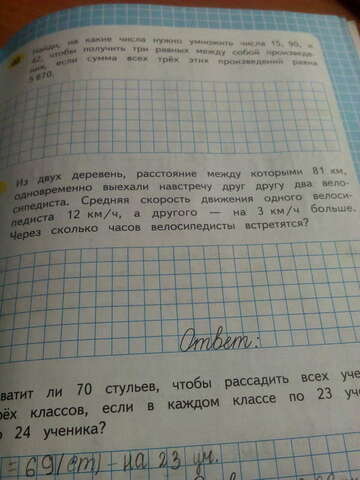 Найди, на какие числа нужно умножить числа 15, 90, и
42, чтобы получить три равных между собой произведе-
ния, если сумма всех трёх этих произведений равна
5 670.
Из двух деревень, расстояние между которыми 81 км,
одновременно выехали навстречу друг другу два вело-
сипедиста. Средняя скорость движения одного велоси-
педиста 12 км/ч, а другого — на 3 км/ч больше.
Через сколько часов велосипедисты встретятся?
Ответ:
ватит ли 70 стульев, чтобы рассадить всех уче
рёх классов, если в каждом классе по 23 уч
о 24 ученика?
= 69 (ст) - на 23 уч.